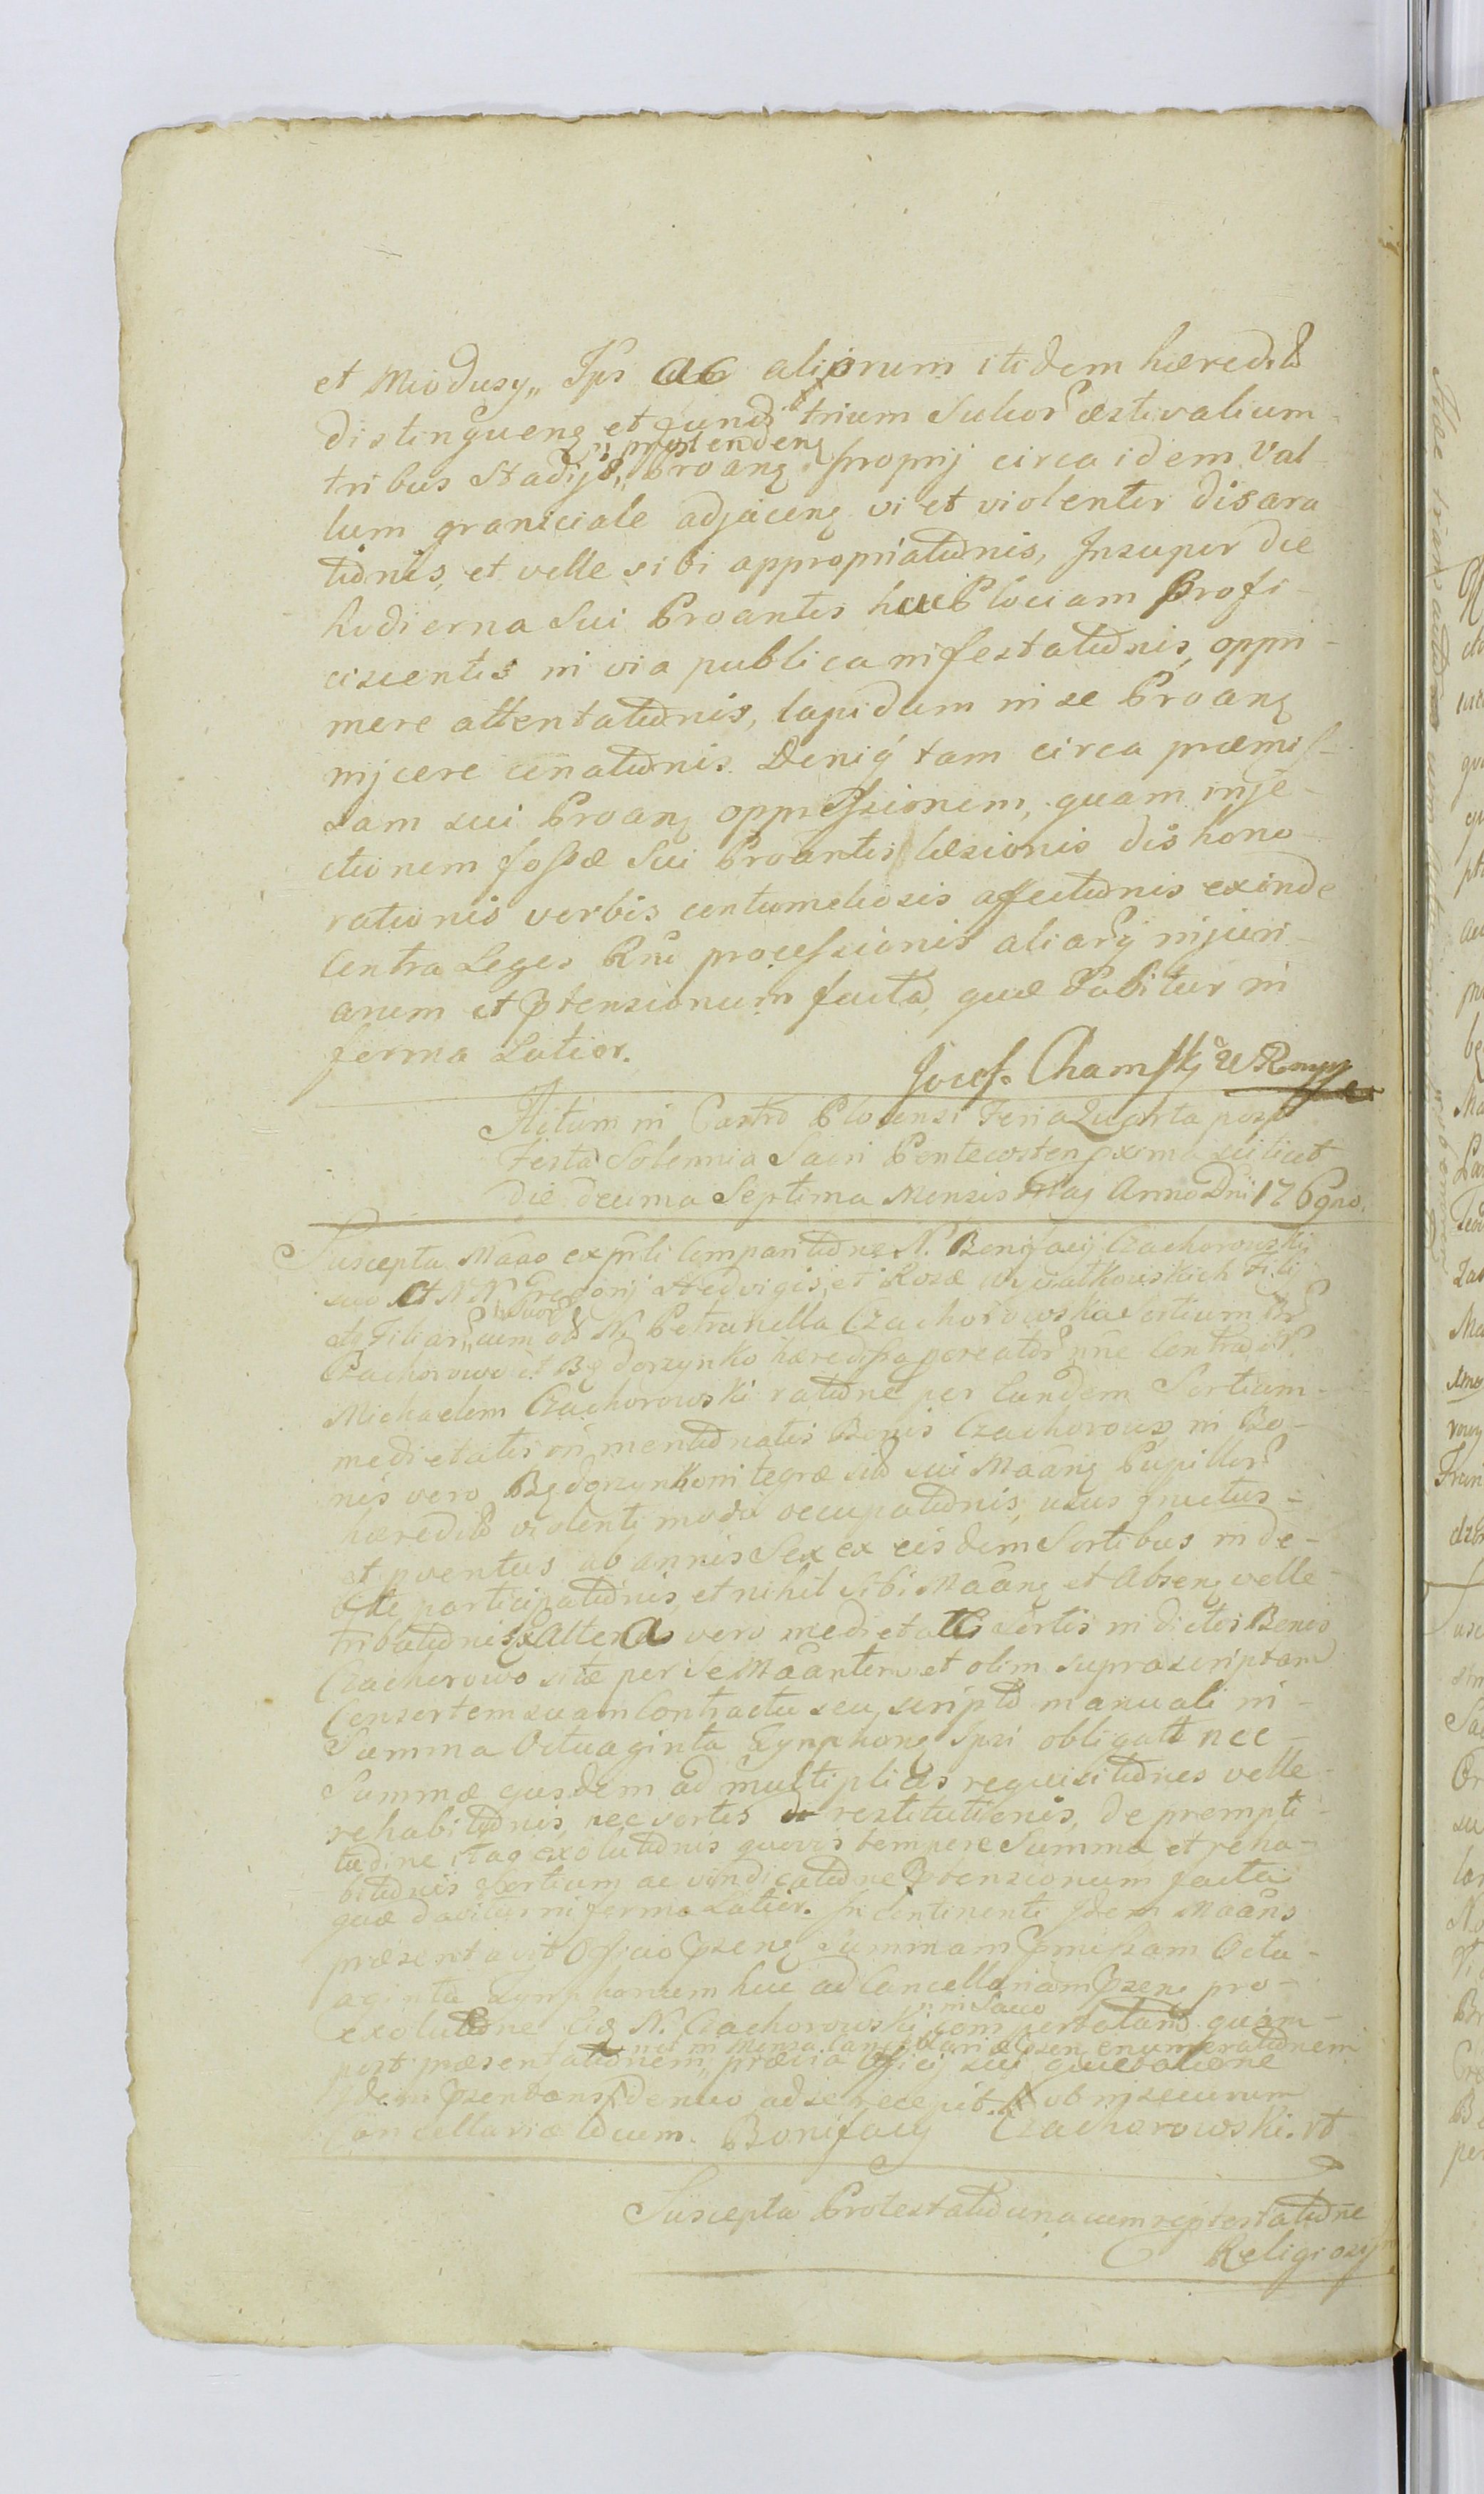 et Miodusy,, Ips ac aliorum itidem hæredit
distingueng et fundi trium Sulcor æstivalium
,, protendeng
tribus Stadijs,, Proang proprij circa idem Val
lum graniciale adjaceng vi et violenter disara
tionis, et velle sibi appropriationis, Insuper die
hodierna Sui Proantis huc Plociam Profi-
ciscentis in via publica infestationis, oppri-
mere attentationis, lapidum in se Proang
injcere conationis. Deniq tam circa præmis-
sam sui Proang oppressionem, quam inje-
ctionem fossæ Sui Proantis læsionis dishono-
rationis verbis contumeliosis affectionis exinde
Contra Leges Rni processionis aliarq injuri-
arum et ptensionum facta, quæ dabitur in
forma Latior.
Josef. Chamski
Actum in Castro Plocensi Feria Quarta post
Festa Solennia Sacri Pentecosten pxima scilicet
die decima Septima Mensis Maij Anno Dni 176
Suscepta Mãao ex pnli Comparitione N. Bonifacij Czachorowski
suo et NN Gregorij Hedvigis, et Rosæ Filij
et Filiar,, cum N. Petronella Czachorowska Sortium
Czachorowo et Bądorzynko hæredissa pcreator pne Contra N.
Michaelem Czachorowski ratione per Eundem Sortium
medietatis in mentionatis Bonis Czachorowo in Bo-
nis vero Bądorzynko integræ sui Mãang Pupillor
hæredit violenti modo occupationis, usus fructus
et pventus ab annis Sex ex eisdem Sortibus inde-
bite participationis, et nihil sibi Mãang et Abseng velle
tribationis Altera vero medietatis Sortis in dictis Bonis
Czachorowo sitæ per Se Mãantem et olim suprascriptam
Consortem suam Contractu seu scripto manuali in
Summa Octuaginta Tynphong Ipsi obligat nec
Summæ ejusdem ad multiplices requisitiones velle
rehabitionis, nec sortis restitutionis, de prompti-
tudine itaq exolutionis quovis tempore Summæ et reha-
bitionis Sortium ac vindicatione ptensionum facta
quæ dabitur in forma Latior. In Continenti Idem Mãans
præsentavit Officio pseng Summam pmissam Octu-
aginta Tynphonum huc ad Cancellariam pseng pro
in Sacco
exolutione N. Czachorowski comportatam quam
in Mensa Cancellariæ psen enumerationem
post præsentationem,, prævia Officij sui quietatione
Idem psentans denuo ad se recepit. ob insecurum
Cancellariæ locum. Bonifacy Czachorowski.
Suscepta Protestatio una cum reptestatione
Religiosij